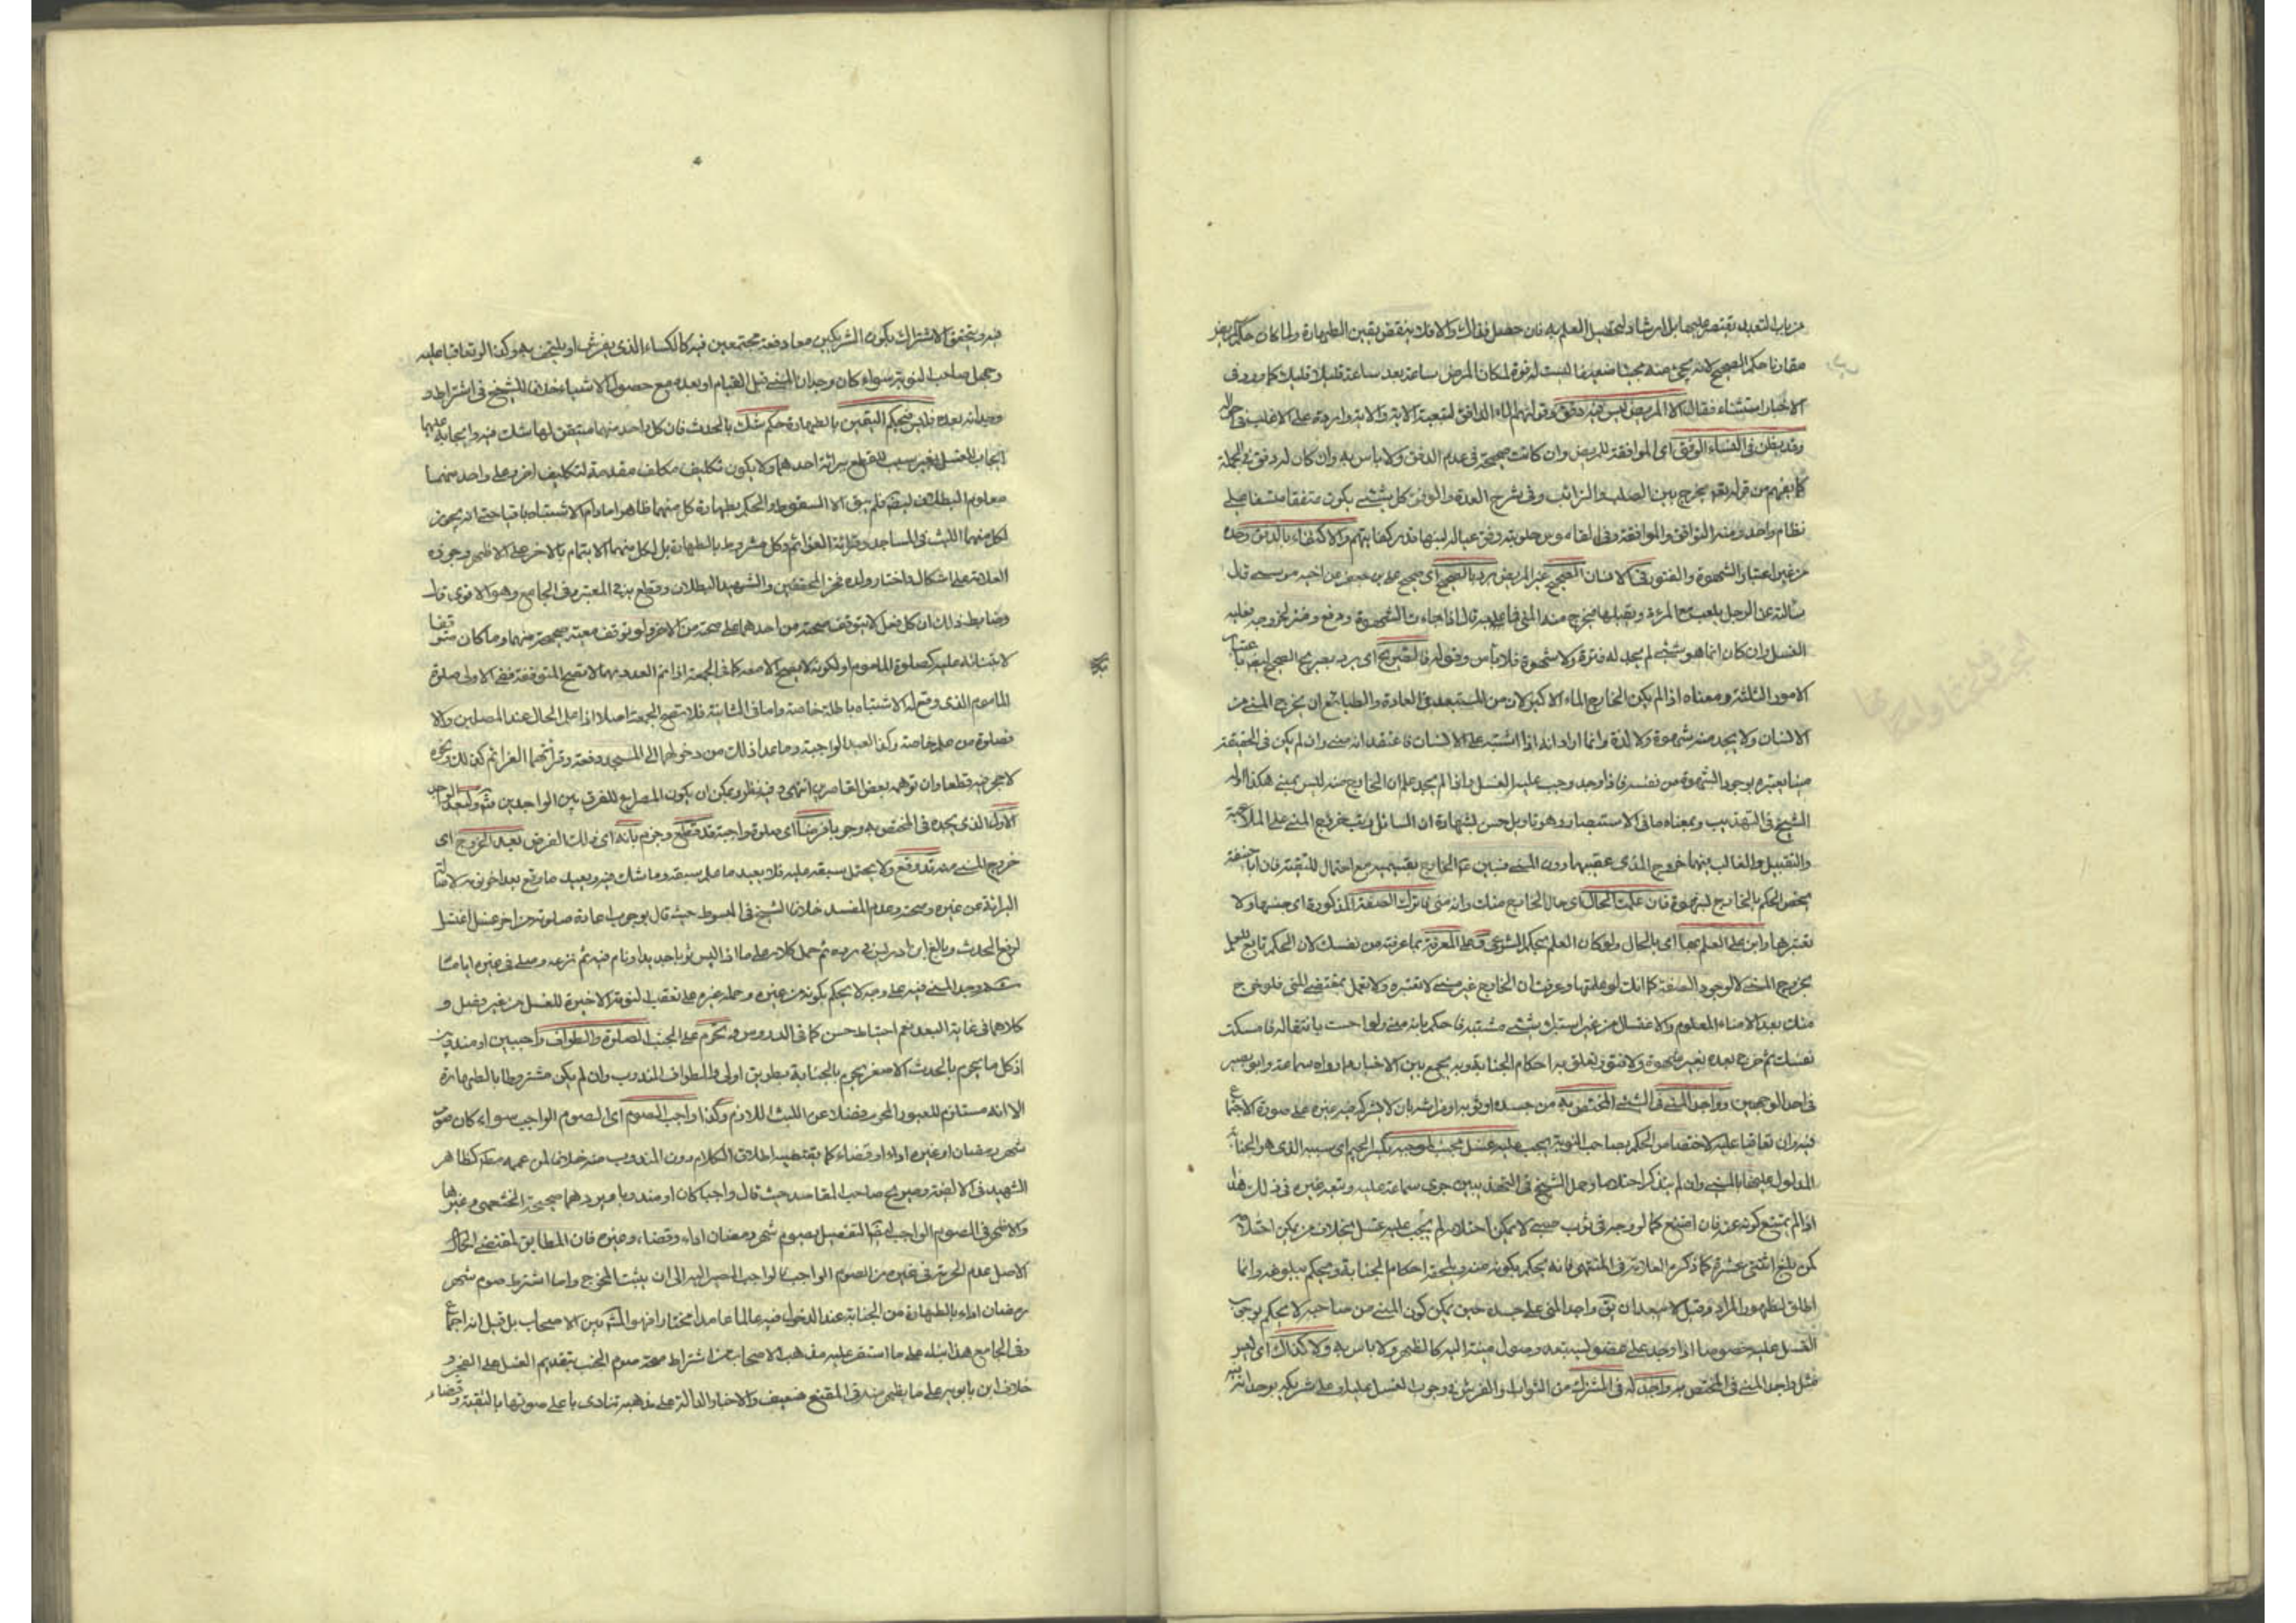 من باب التعبد يقتصر عليها بل ارشاد لتحصيل العلم به فان حصل فذاك والا فلا ينقض يقين الطهارة ولما كان حكم المريض
مقارنا حكم الصحيح لانه يجئ منه مجيئا ضعيفا ليست له قوة لمكان المرض ساعة بعد ساعة قليلا قليلا كما ورد في
الاخبار استثناه فقال الا المريض ليس فيه دفق وقولهم الماء الدافق لتبعية الاية والاية واردة على الاغلب
وقد يظن في النساء الوفق اي الموافقة للمريض وان كانت صحيحة في عدم الدفق ولا باس به وان كان له دفق في الجملة
كما يفهم من قوله تعالى يخرج من بين الصلب والترائب وفي شرح العدة والوفق كل شئ يكون متفقا متسقا على
نظام واحد ومنه التوافق والموافقة وفي القاموس حلوبته وفق عياله لبنها قدر كفايتهم والاكتفاء بالدفق وحده
من غير اعتبار الشهوة والفتور في الانسان الصحيح غير المريض يرد بالصحيح اي صحيح علي بن جعفر من اخيه موسى قال
سالته عن الرجل يلعب مع المرءة ويقبلها فيخرج منه المني فما عليه قال اذا جاءت الشهوة ودفع وفتر لخروجه فعليه
الغسل وان كان انما هو شئ لم يجد له فترة ولا شهوة فلا باس وقوله فالصريح اي يرد بصريح الصحيح ايضا باعتبار
الامور الثلثة ومعناه اذا لم يكن الخارج الماء الاكبر لان من المستبعد في العادة والطبايع ان يخرج المني من
الانسان ولا يجد منه شهوة ولا لذة وانما اراد انه اذا اشتبه على الانسان فاعتقد انه مني وان لم يكن في الحقيقة
منيا يعتبره بوجود الشهوة من نفسه فاذا وجد وجب عليه الغسل واذا لم يجد علم ان الخارج منه ليس بمني هكذا اوله
الشيخ في التهذيب وبمعناه ما في الاستبصار وهو تاويل حسن بشهادة ان السائل رتب خروج المني على الملاعبة
والتقبيل والغالب منهما خروج المذي عقيبهما دون المني فبين ع الخارج بقسميه مع احتمال للتقية فان ابا حنيفة
يخص الحكم بالخارج لشهوة فان علمت الحال اي حال الخارج منك وانه مني فاترك الصفة المذكورة اي جنسها ولا
تعتبرها وابن على العلم بها اي بالحال ولو كان العلم بحكم الشرع وعلى المعرفة بما عرفته من نفسك لان الحكم تابع للعلم
بخروج المني لا لوجود الصفة كما انك لو علمتها وعرفت ان الخارج غير مني لا تعتبره ولا تعمل بمقتضى المني فلو خرج
منك بعد الامناء المعلوم والاغتسال من غير استبراء شئ مشتبه فاحكم بانه مني ولو احست بانتقاله فامسكت
نفسك ثم خرج بعده بغير شهوة ولا فتور تعلق به احكام الجنابة وبه يجمع بين الاخبار هما رواه سماعة وابو بصير
في احد الوجهين وواجد المني في الشئ المختص به من جسده او ثوبه او فراشه بان لا يشركه فيه غيره على صورة الاجتماع
فيه وان تعاقبا عليه لاختصاص الحكم بصاحب النوبة يجب عليه غسل مجنب لموجبه بكسر الجيم اي سببه الذي هو الجنابة
المدلول عليها بالمني وان لم يتذكر احتلاما وحمل الشيخ في التهذيبين جرى سماعة عليه وتبعه غيره في ذلك هذا
اذا لم يمتنع كونه عنه فان امتنع كما لو وجده في ثوب صبي لا يمكن احتلامه لم يجب عليه غسل بخلاف من يمكن احتلامه
كمن بلغ اثنتي عشرة كما ذكره العلامة في المنتهى فانه يحكم بكونه منه ويلحقه احكام الجنابة ويحكم ببلوغه وانما
اطلق لظهور المراد وقيل لا يبعد ان يق واجد المني على جسده حين يمكن كون المني من صاحبه لا يحكم بوجوب
الغسل عليه خصوصا اذا وجد على عضو ليستبعد وصول منيه اليه كالظهر ولا باس به ولا كذاك اي ليس
مثل واجد المني في المختص به واجد له في المشترك من الثواب والفرش في وجوب الغسل عليه او على شريكه بوجدانه
فيه ويتحقق الاشتراك بكون الشريكين معا دفعة مجتمعين فيه كالكساء الذي يفرش او يلتحف به وكذا لو تعاقبا عليه
وجهل صاحب النوبة سواء كان وجدان المني قبل القيام او بعده مع حصول الاشباه خلافا للشيخ في اشتراط
وجدانه بعده فليس حكم اليقين بالطهارة حكم شك بالحدث فان كل واحد منهما متيقن لها شك فيه وايجابه عليهما
ايجاب للغسل بغير سبب للقطع ببرائة احدهما ولا يكون تكليف مكلف مقدمة لتكليف اخر وعلى واحد منهما
معلوم البطلان فلم يبق الا السقوط والحكم بطهارة كل منهما ظاهرا مادام الاشتباه باقيا حتى انه يجوز
لكل منهما اللبث في المساجد وقرائة العزائم وكل مشروط بالطهارة بل لكل منهما الايتمام بالاخر على الاظهر وجوزه
العلامة على اشكال واختار ولده فخر المحققين والشهيد البطلان وقطع به في المعتبر وفي الجامع وهو الاقوى قال
وضابط ذلك ان كل فعل لا يتوقف صحته من احدهما على صحته من الاخر ولو توقف معية صح منهما وما كان متوقفا
لابتنائه عليه كصلوة الماموم او لكونه لا يصح الا معه كما في الجمعة اذا تم العدد بهما لا تصح المتوقفة ففي الاولى صلوة
الماموم الذي وقع له الاشتباه باطلة خاصة واما في الثانية فلا تصح الجمعة اصلا اذا علم الحال عند المصلين والا
فصلوة من علم خاصة وكذا العيد الواجبة وما عدا ذلك من دخولهما الى المسجد دفعة وقرائتهما العزائم كذلك ونحوه
لا حجر فيه قطعا وان توهمه بعض القاصرين انتهى وفيه نظر ويمكن ان يكون المصراع للفرق بين الواجدين ثم وليعد الواجد
الاول الذي يجده في المختص به وجوبا فرضا اي صلوة واجبة قد قطع وجزم بانه اي ذلك الفرض بعد الخروج اي
خروج المني منه قد وقع ولا يحتمل سبقه عليه فلا يعيد ما علم سبقه وما شك فيه ويعيد ما وقع بعد اخر نومه لاصالة
البرائة عن غيره وصحته وعدم المفسد خلافا للشيخ في المبسوط حيث قال بوجوب اعادة صلوته من اخر غسل اغتسل
لرفع الحدث وبالغ ابن ادريس في رده ثم حمل كلامه على ما اذا لبس ثوبا جديدا ونام فيه ثم نزعه وصلى في غيره اياما
ثم وجد المني فيه على وجه لا يحكم بكونه من غيره وحمله غيره على تعقب النومة الاخيرة للغسل من غير فصل و
كلاهما في غاية البعد نعم احتياط حسن كما في الدروس ويحرم على المجنب الصلوة والطواف واجبين او مندوبين
اذ كل ما يحرم بالحدث الاصغر يحرم بالجنابة بطريق اولى والطواف المندوب وان لم يكن مشروطا بالطهارة
الا انه مستلزم للعبور المحرم فضلا عن اللبث اللازم وكذا واجب الصوم اي الصوم الواجب سواء كان صوم
شهر رمضان او غيره اداء او قضاء كما يقتضيه اطلاق الكلام دون المندوب منه خلافا لمن عممه مطلقا كظاهر
الشهيد في الالفية وصريح صاحب المقاصد حيث قال واجبا كان او مندوبا ويردهما صحيحة الخثعمي وغيرها
والاظهر في الصوم الواجب ايضا التفصيل بصوم شهر رمضان اداء وقضاء وغيره فان المطابق لمقتضى الحال
الاصل عدم الحرمة في غيره من الصوم الواجب فالواجب المصير اليه الى ان يثبت المخرج واما اشتراط صوم شهر
رمضان اداء بالطهارة من الجنابة عند الدخول فيه عالما عامدا مختارا فهو المشهور بين الاصحاب بل قيل انه اجماع
وفي الجامع هذا بناء على ما استقر عليه مذهب الاصحاب من اشتراط صحة صوم الجنب بتقديم الغسل على الفجر و
خلاف ابن بابويه على ما يظهر منه في المقنع ضعيف والاخبار الدالة على مذهبه تنادي باعلى صوتها بالتقية وقضاء